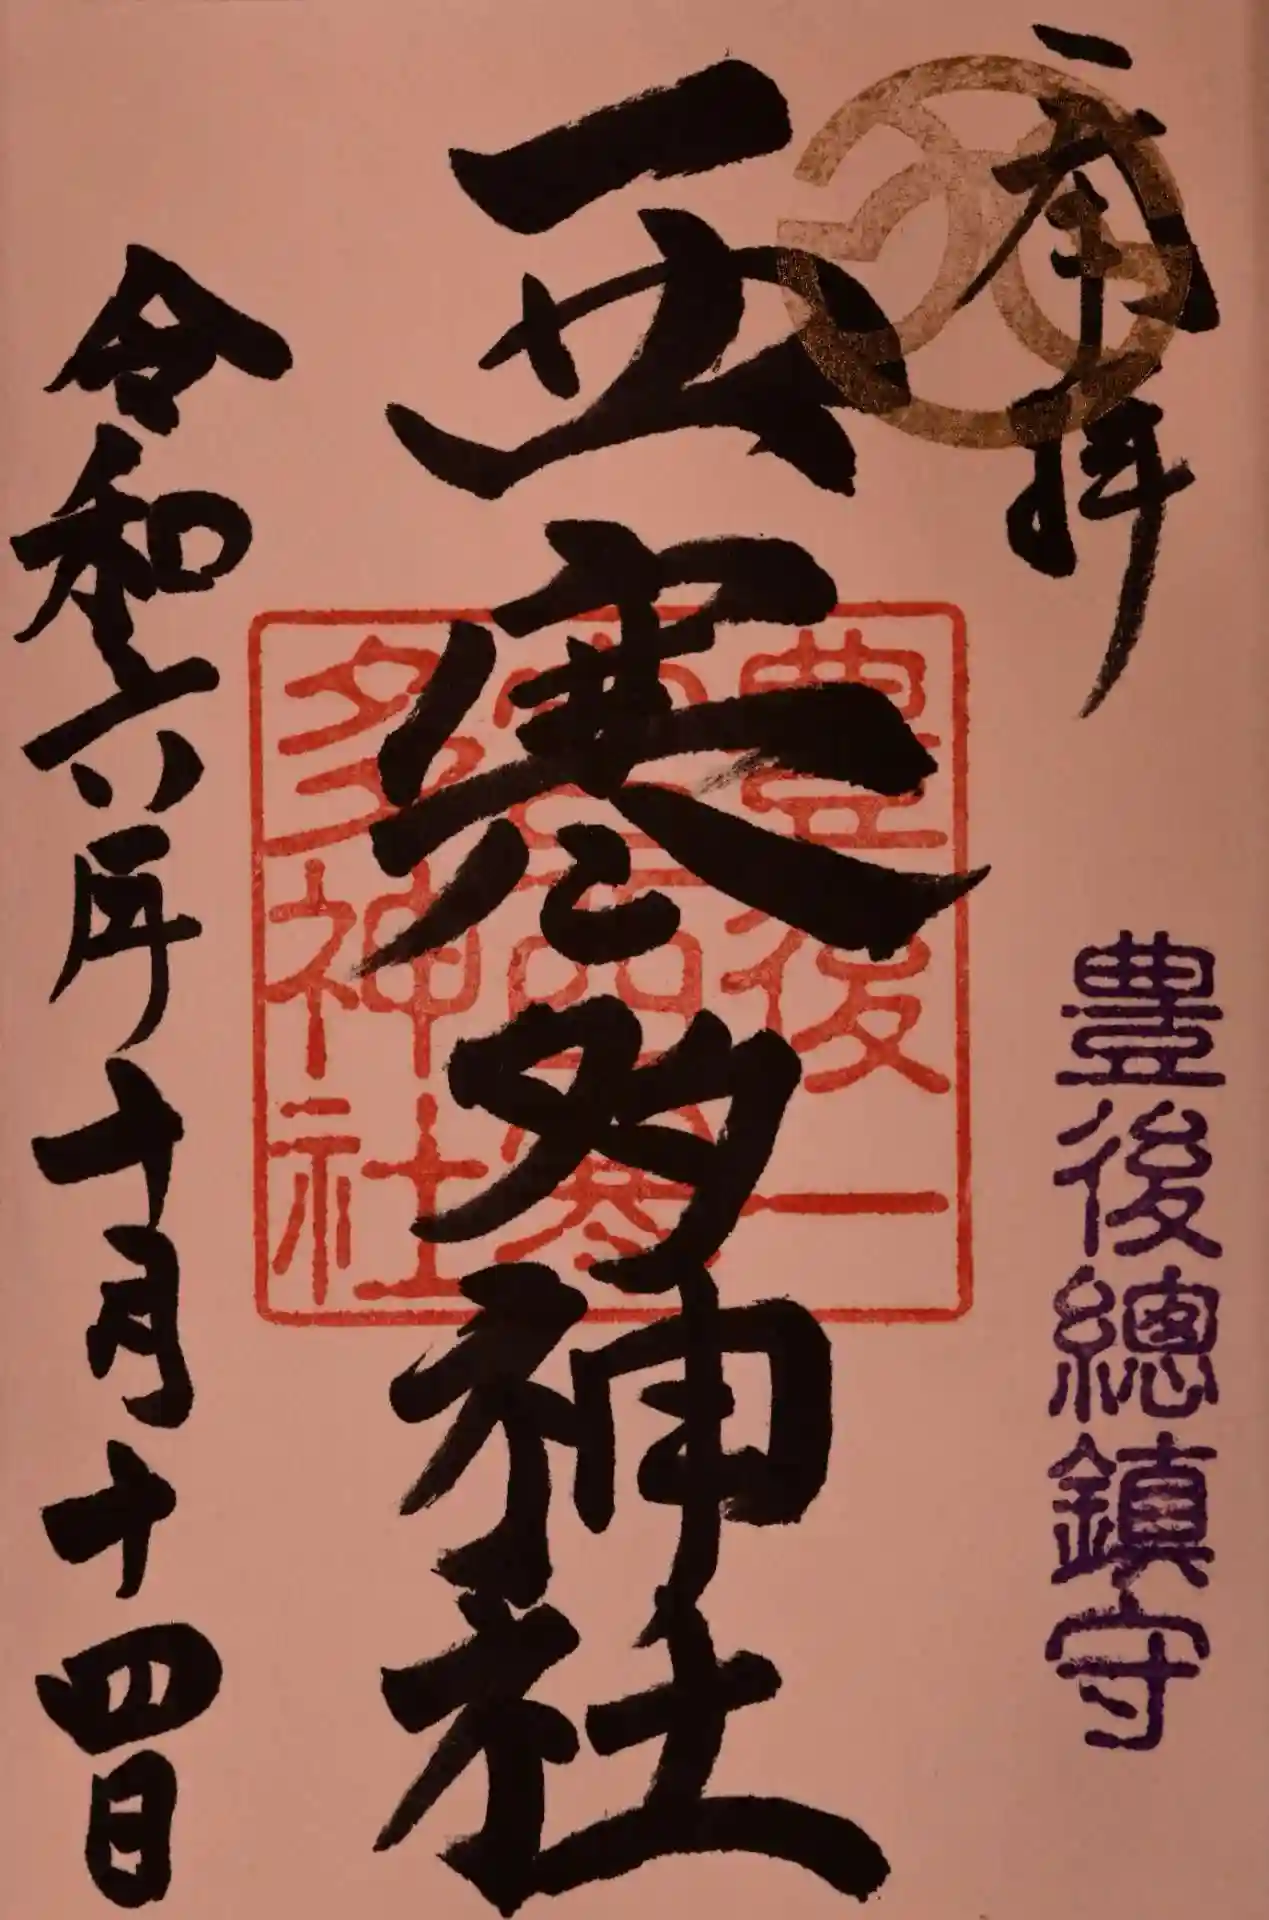 奉拝
豊後總鎮守
西寒多神社
豊後一
宮西寒
多神社
令和六年十月十四日